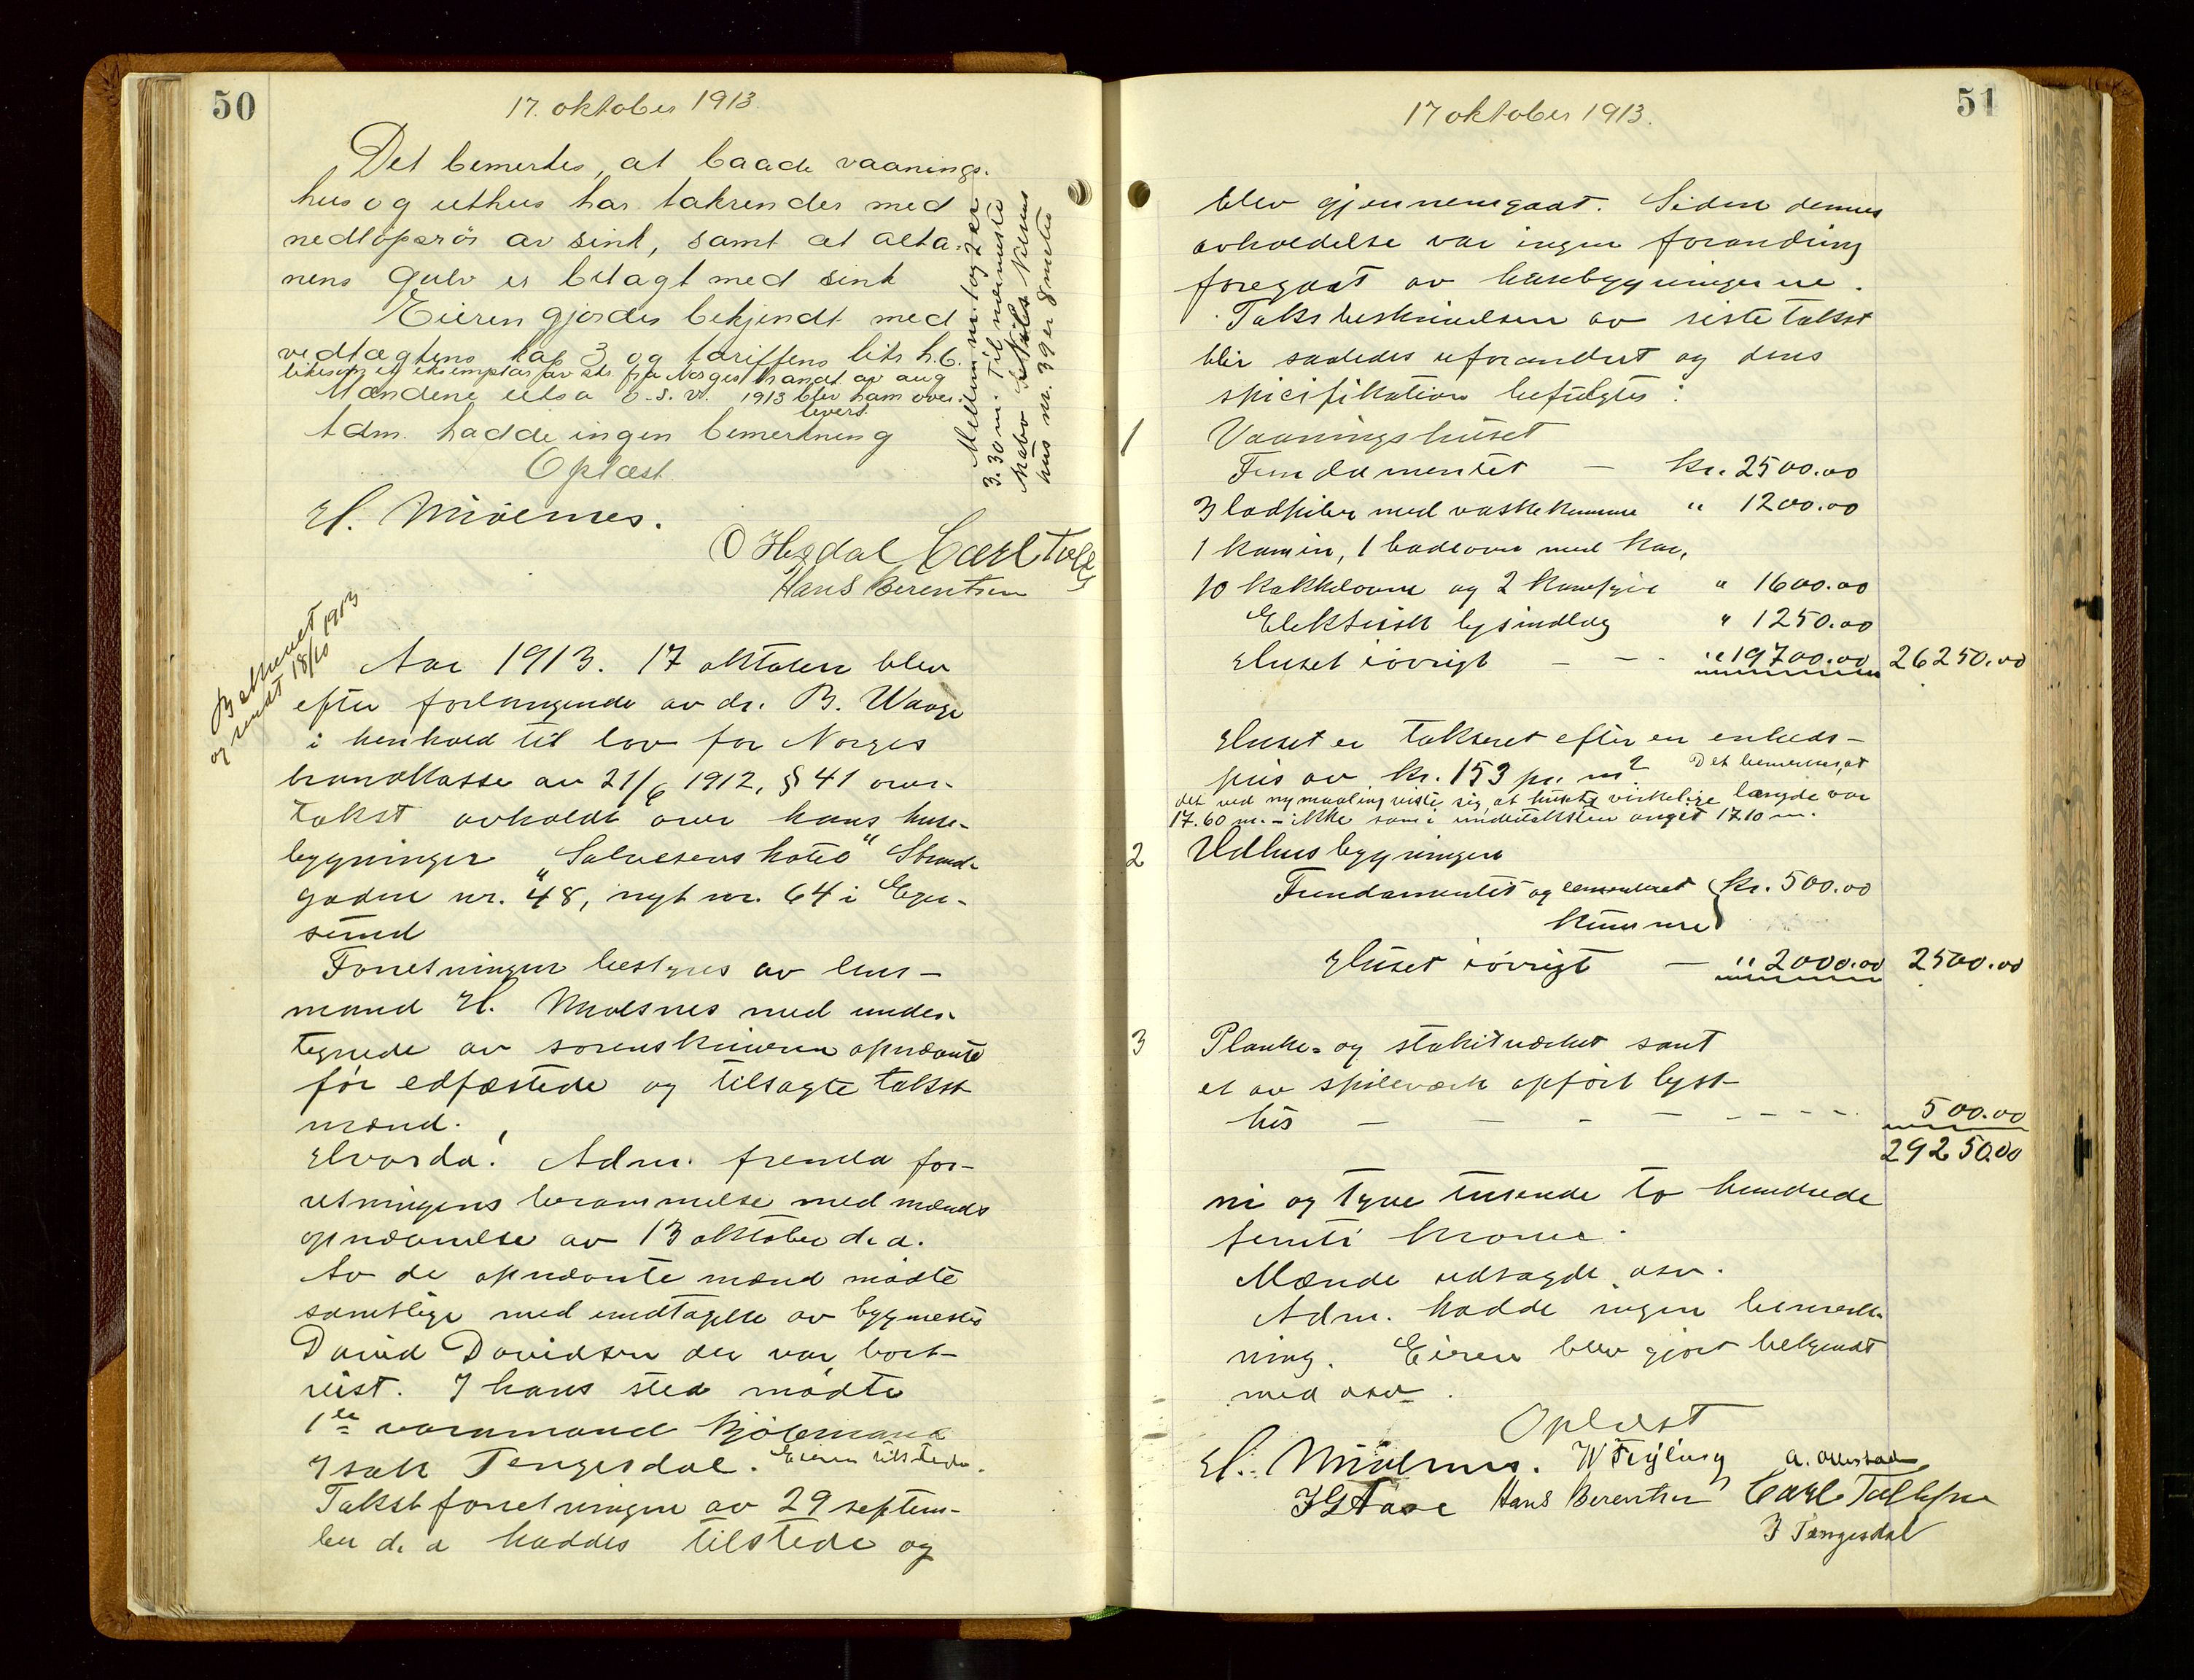 50
17. oktober 1913.
Det bemerkes, at baade vaanings-
hus og uthus har takrender med
nedløpsrør av sink, samt at alta-
nens gulv er belagt med sink
Eieren gjordes bekjendt med
vedtægtens kap 3 og tariffens litr h. 6.
likesom et eksemplar av fra Norges brandk. av aug
1913 blev ham over-
levert
Mændene utsa o. s. v.
Adm. hadde ingen bemerkning
Oplæst
H. Mydlernes.
O Hegdal Carl Tollefs
Hans Berentsen
Mellem nr. 1 og 2 er
3.30 m. Til nærmeste
nabo Nilsens
hus nr. 39 er 8 meter
Bekræftet
og sendt 18/10 1913
Aar 1913. 17 oktober blev
efter forlangende av dr. B. Waage
i henhold til lov for Norges
brandkasse av 21/6 1912, § 41 over-
takst avholdt over hans huse-
bygninger "Salvesens hotel" Strand-
gaden nr. 48, nyt nr. 64 i Eger-
sund
Forretningen bestyres av lens-
mand H. med under-
tegnede av sorenskriveren opnævnte
før edfæstede og tilsagte takst
mænd.
Hvorda! Adm. fremla for-
retningens berammelse med mænds
opnævnelse av 13 oktober d. a.
Av de opnævnte mænd mødte
samtlige med undtagelse av bygmester
David Davidsen der var bort-
reist. I hans sted mødte
1ste varamand kjøbmand
Isak Tengesdal. Eieren tilstede.
Takstforretningen av 29 septem-
ber d. a haddes tilstede og
51
17 oktober 1913.
blev gjennemgaat. Siden dennes
avholdelse var ingen forandring
foregaat av husebygningerne.
Takstbeskrivelsen av siste takst
blir saaledes uforandret og dens
spicifikation befulgtes:
1
Vaaningshuset
Fundamentet — kr. 2500.00
3 ladpiber med vaskekumme " 1200.00
1 kamin, 1 badeovn med kar,
10 kakkelovne og 2 komfyrer " 1600.00
Elektrisk lysindlæg " 1250.00
Huset iøvrigt — — - " 19700.00 26250.00
Huset er takseret efter en enheds-
pris av kr. 153 pr. m² Det bemerkes, at
det ved nymaaling viste sig, at husets virkelige længde var
17.60 m. - ikke som i undertaksten anget 17.10 m.
2 Udhusbygningen
Fundamentet og cementeret kr. 500.00
kumme
Huset iøvrigt — " 2000.00 2500.00
3 Planke- og stakitværket samt
et av spileværk opført lyst-
hus — — - — - - - - 500.00
29250.00
ni og tyve tusende to hundrede
femti kroner.
Mænde udsagde osv.
Adm. hadde ingen bemerk-
ning. Eieren blev gjort bekjendt
med osv.
Oplæst
H. Mydlernes. W Feyling A. Ollestad
Hans Berentsen Carl Tollefsen
I Tengesdal